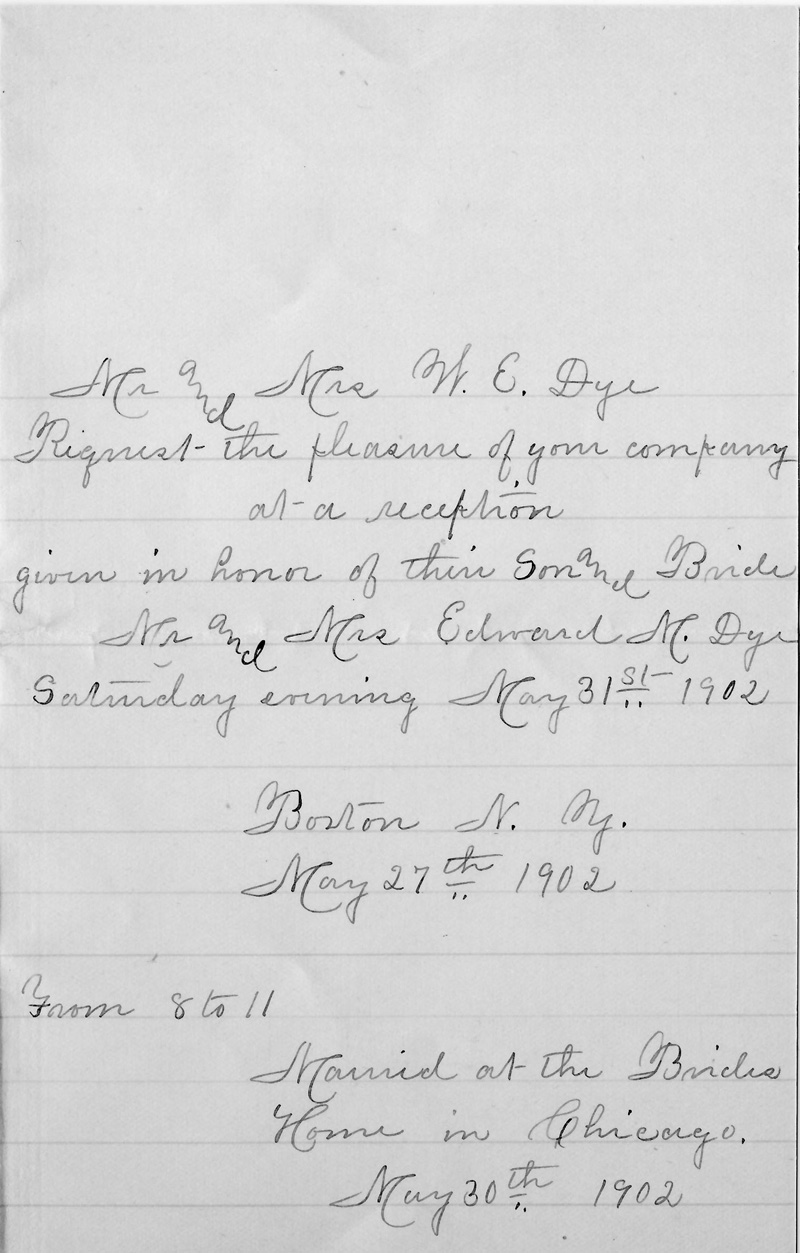 Mr and Mrs W. E. Dye
Request the pleasure of your company
at a reception
given in honor of their Son and Bride
Mr and Mrs Edward M. Dye
Saturday evening May 31st 1902
Boston N. Y.
May 27th 1902
From 8 to 11
Married at the Brides
Home in Chicago.
May 30th 1902